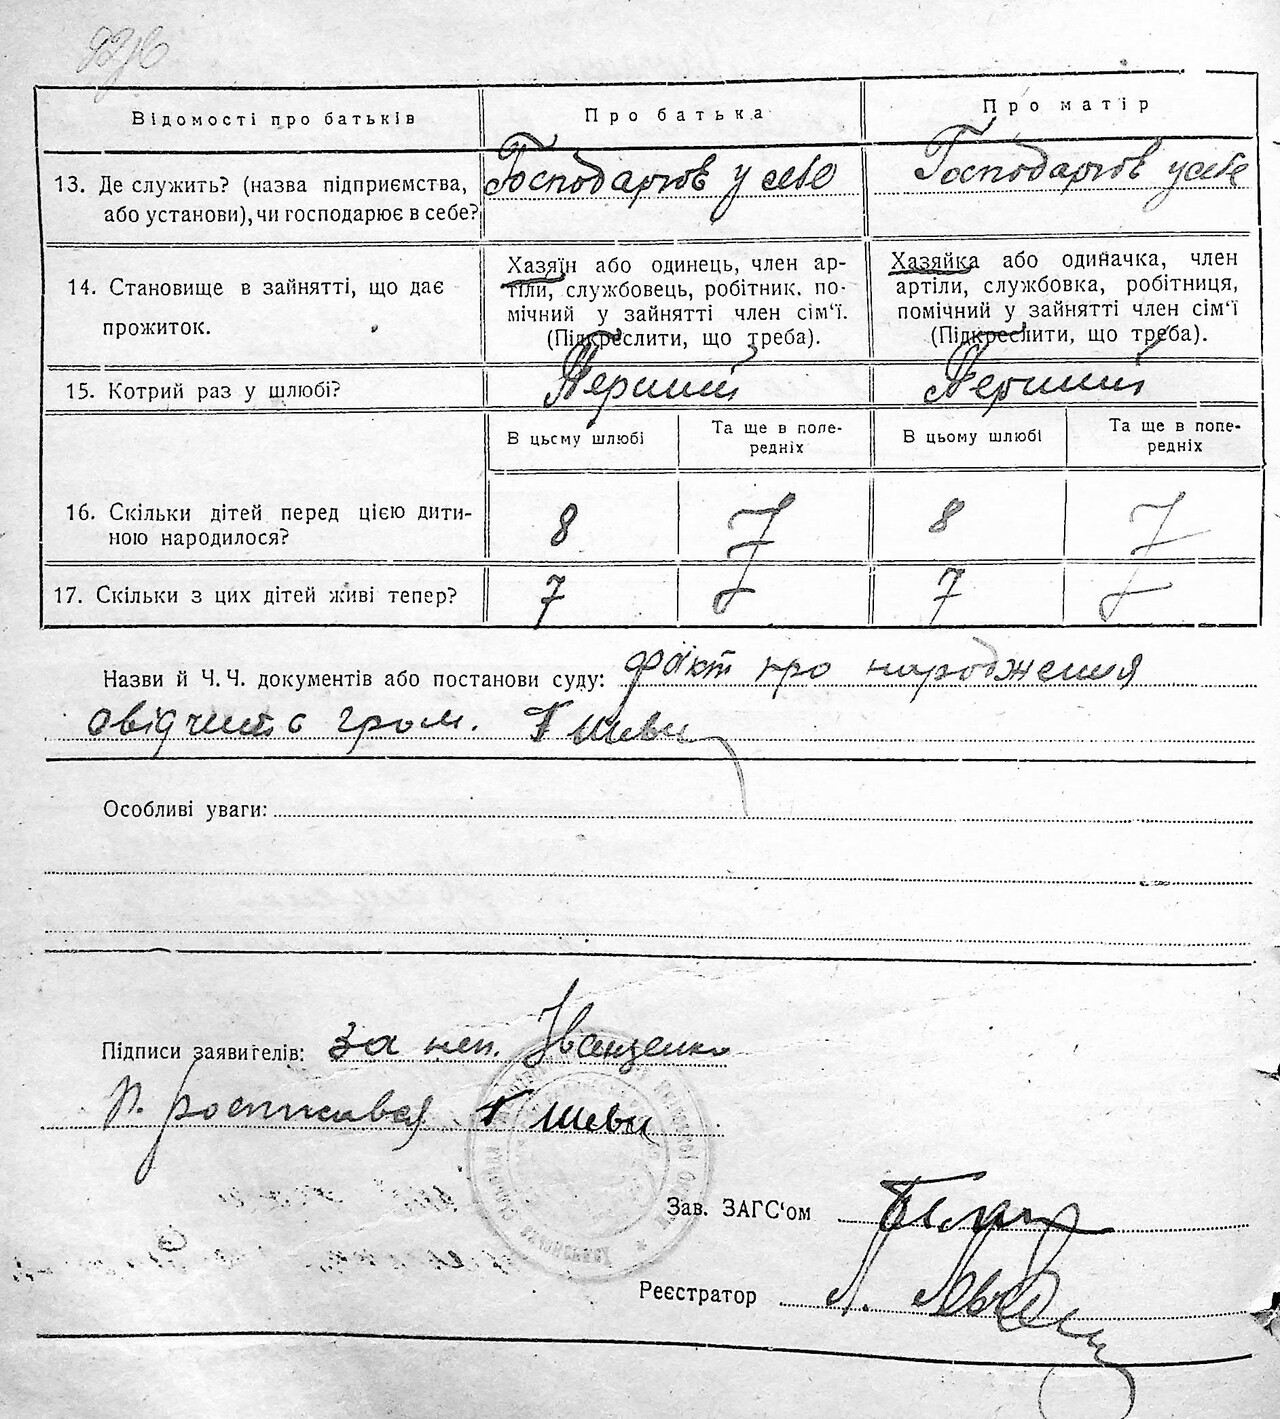 Відомості про батьків
Про батька
Про матір
13. Де служить? (назва підприємства, або установи), чи господарює в себе?
Господарюв у себе
Господарюв у себе
14. Становище в зайнятті, що дає прожиток.
Хазяїн або одинець, член ар-
тіли, службовець, робітник. по-
мічний у зайнятті член сім'ї.
(Підкреслити, що треба).
Хазяйка або одиначка, член
артіли, службовка, робітниця,
помічний у зайнятті член сім'ї
(Підкреслити, що треба).
15. Котрий раз у шлюбі?
Перший
Перший
В цьсму шлюбі
Та ще в попе-
редніх
В цьому шлюбі
Та ще в попе-
редніх
16. Скільки дітей перед цією дити-
ною народилося?
8
8
17. Скільки з цих дітей живі тепер?
7
7
Назви й Ч. Ч. документів або постанови суду: факт про народження
свідчить гром.
Особливі уваги:
Підписи заявителів: за неп. Іващенко
р. росписався
Зав. ЗАГС'ом
Реєстратор